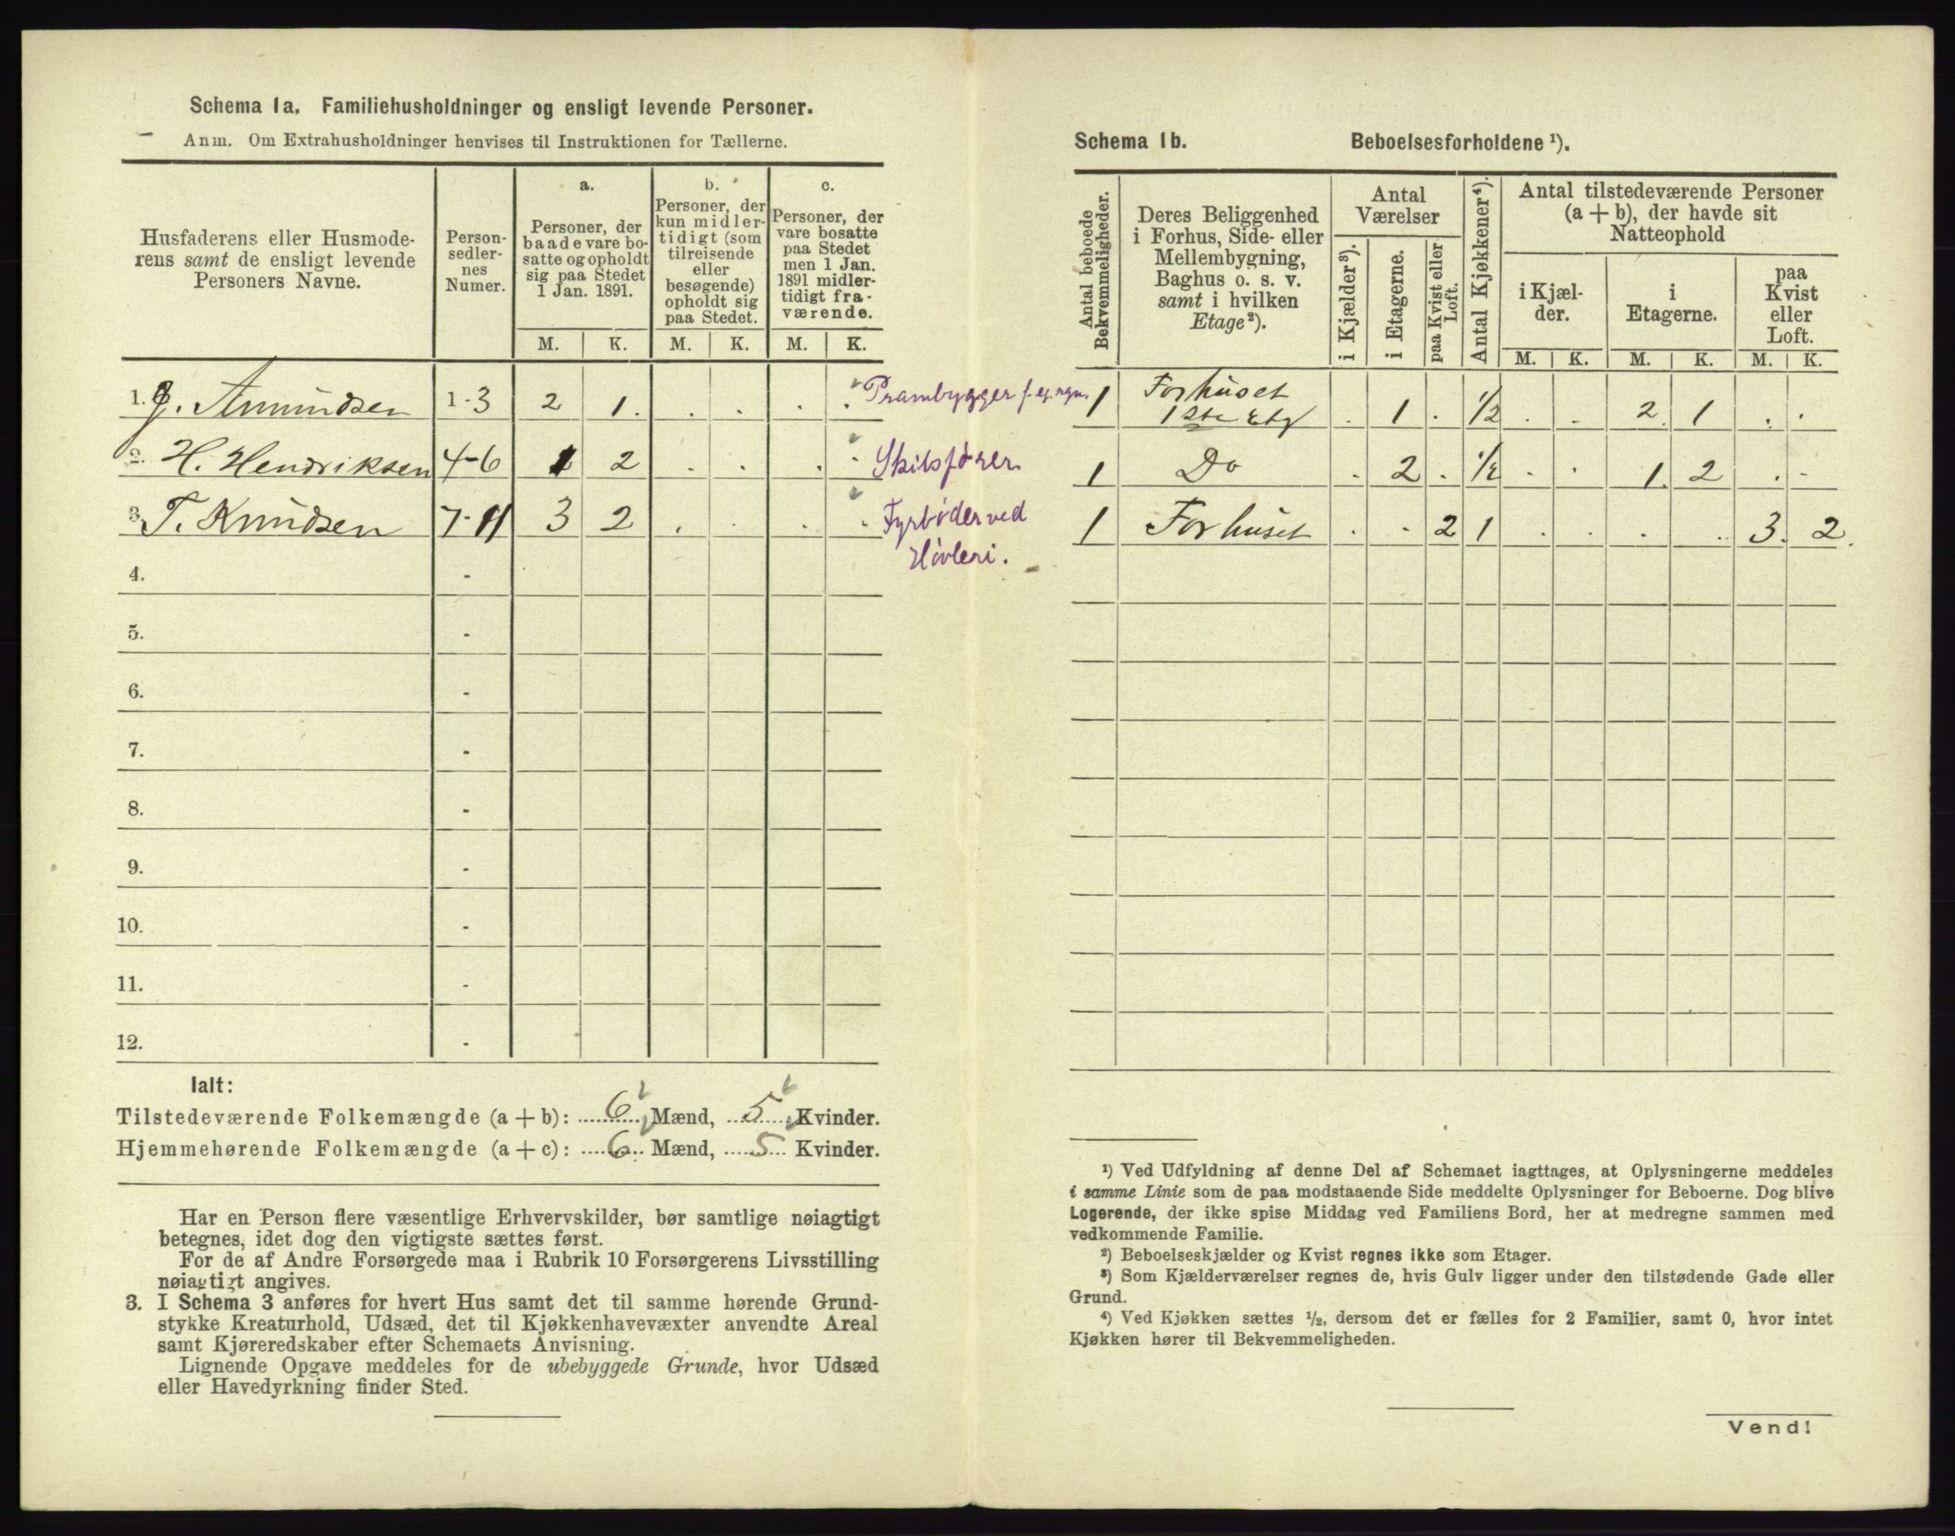 Schema 1a. Familiehusholdninger og ensligt levende Personer.
Anm. Om Extrahusholdninger henvises til Instruktionen for Tællerne.
Husfaderens eller Husmode-
rens samt de ensligt levende
Personers Navne.
Person-
sedler-
nes
Numer.
a.
Personer, der
baade vare bo-
satte og opholdt
sig paa Stedet
1 Jan. 1891.
b.
Personer, der
kun midler-
tidigt (som
tilreisende
eller
besøgende)
opholdt sig
paa Stedet.
c.
Personer, der
vare bosatte
paa Stedet
men 1 Jan.
1891 midler-
tidigt fra-
værende.
M. K. M. K. M. K.
1. J. Amundsen 1-3 2 1 . . . . . Prambygger f. eg. regn.
2. H. Hendriksen 4-6 1 2 . . . . Skibsfører
3. T. Knudsen 7-11 3 2 . . . . Fyrbøder ved
Høvleri.
4. -
5. -
6. -
7. -
8. -
9. -
10. -
11. -
12. -
Ialt:
Tilstedeværende Folkemængde (a + b): 6 Mænd, 5 Kvinder.
Hjemmehørende Folkemængde (a + c): 6 Mænd, 5 Kvinder.
Har en Person flere væsentlige Erhvervskilder, bør samtlige nøiagtigt
betegnes, idet dog den vigtigste sættes først.
For de af Andre Forsørgede maa i Rubrik 10 Forsørgerens Livsstilling
nøiagtigt angives.
3. I Schema 3 anføres for hvert Hus samt det til samme hørende Grund-
stykke Kreaturhold, Udsæd, det til Kjøkkenhavevæxter anvendte Areal
samt Kjøreredskaber efter Schemaets Anvisning.
Lignende Opgave meddeles for de ubebyggede Grunde, hvor Udsæd
eller Havedyrkning finder Sted.
Schema 1b. Beboelsesforholdene ¹).
Antal beboede
Bekvemmeligheder.
Deres Beliggenhed
i Forhus, Side- eller
Mellembygning,
Baghus o. s. v.
samt i hvilken
Etage²).
Antal
Værelser
i Kjælder³).
i Etagerne.
paa Kvist eller
Loft.
Antal Kjøkkener⁴).
Antal tilstedeværende Personer
(a + b), der havde sit
Natteophold
i Kjæl-
der.
i
Etagerne.
paa
Kvist
eller
Loft.
M. K. M. K. M. K.
1 Forhuset
1ste Etg . 1 . 1/2 . . 2 1 . .
1 Do . 2 . 1/2 . . 1 2 . .
1 Forhuset . . 2 1 . . . . 3 2
¹) Ved Udfyldning af denne Del af Schemaet iagttages, at Oplysningerne meddeles
i samme Linie som de paa modstaaende Side meddelte Oplysninger for Beboerne. Dog blive
Logerende, der ikke spise Middag ved Familiens Bord, her at medregne sammen med
vedkommende Familie.
²) Beboelseskjælder og Kvist regnes ikke som Etager.
³) Som Kjælderværelser regnes de, hvis Gulv ligger under den tilstødende Gade eller
Grund.
⁴) Ved Kjøkken sættes ½, dersom det er fælles for 2 Familier, samt 0, hvor intet
Kjøkken hører til Bekvemmeligheden.
Vend!